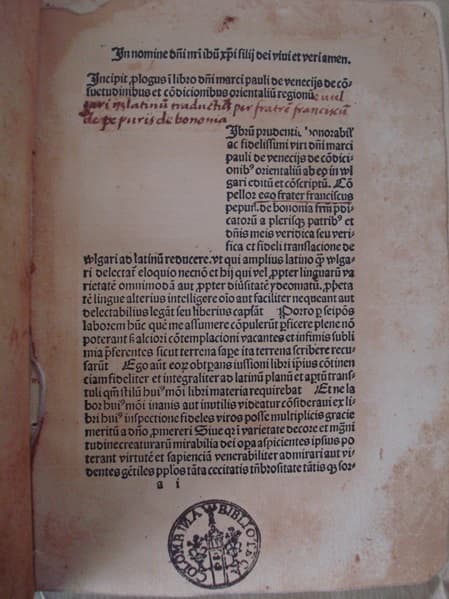 In nomine dñi nr̃i ihũ xp̃i filij dei viui et veri amen.
Incipit ꝓlogus i libro dñi marci pauli de venecijs de cõ
suetudinibus et cõdicionibus orientaliũ regionũ e uul
gari in latinũ traductus per fratrẽ franciscũ
de pepuris de bononia
Ibrũ prudentis honorabil
ac fidelissimi viri dñi marci
pauli de venecijs de cõdici-
onibꝰ orientaliũ ab eo in wl
gari editũ et cõscriptũ. Cõ
pellor ego frater franciscus
pepur̃. de bononia frm̃ p̃di-
catorũ a plerisqꝫ patribꝰ et
dñis meis veridica seu verifi-
ca et fideli translacione de
wlgari ad latinũ reducere. vt qui amplius latino qͣ wl
gari delectant̃ eloquio necnõ et hij qui vel ꝓpter linguarũ va
rietatẽ omnimodã aut ꝓpter diũsitatẽ ydeomatũ. ꝓprieta
tẽ lingue alterius intelligere oĩo aut faciliter nequeant aut
delectabilius legãt seu liberius capiãt Porro ꝑ seipõs
laborem hũc quẽ me assumere cõpulerũt ꝑficere plene nõ
poterant sꝫ alciori cõtemplacioni vacantes et infimis subli
mia p̃ferentes sicut terrena sape ita terrena scribere recu-
sarũt Ego aũt eoꝝ obtẽperans iussioni libri ip̃ius cõtinen
ciam fideliter et integraliter ad latinũ planũ et aꝑtũ trans
tuli qm̃ stilũ huiꝰmõi libri materia requirebat Et ne la
bor huiꝰmõi inanis aut inutilis videatur cõsideraui ex li-
bri huiꝰ inspectione fideles viros posse multiplicis gracie
meritũ a dño ꝓmereri Siue qꝛ in varietate decore et mgni
tudine creaturarũ mirabilia dei oꝑa aspicientes ipsius po
terant virtutẽ et sapienciã venerabiliter admirari aut vi-
dentes gẽtiles pplos tãta cecitatis tñbrositate tãtisqꝫ sor-
a i
COLOMBINA BIBLIOTECA